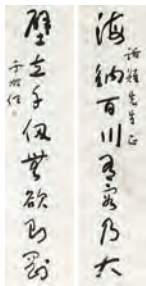 海納百川有容乃大
先生正
壁立千仞無欲則剛
于右任